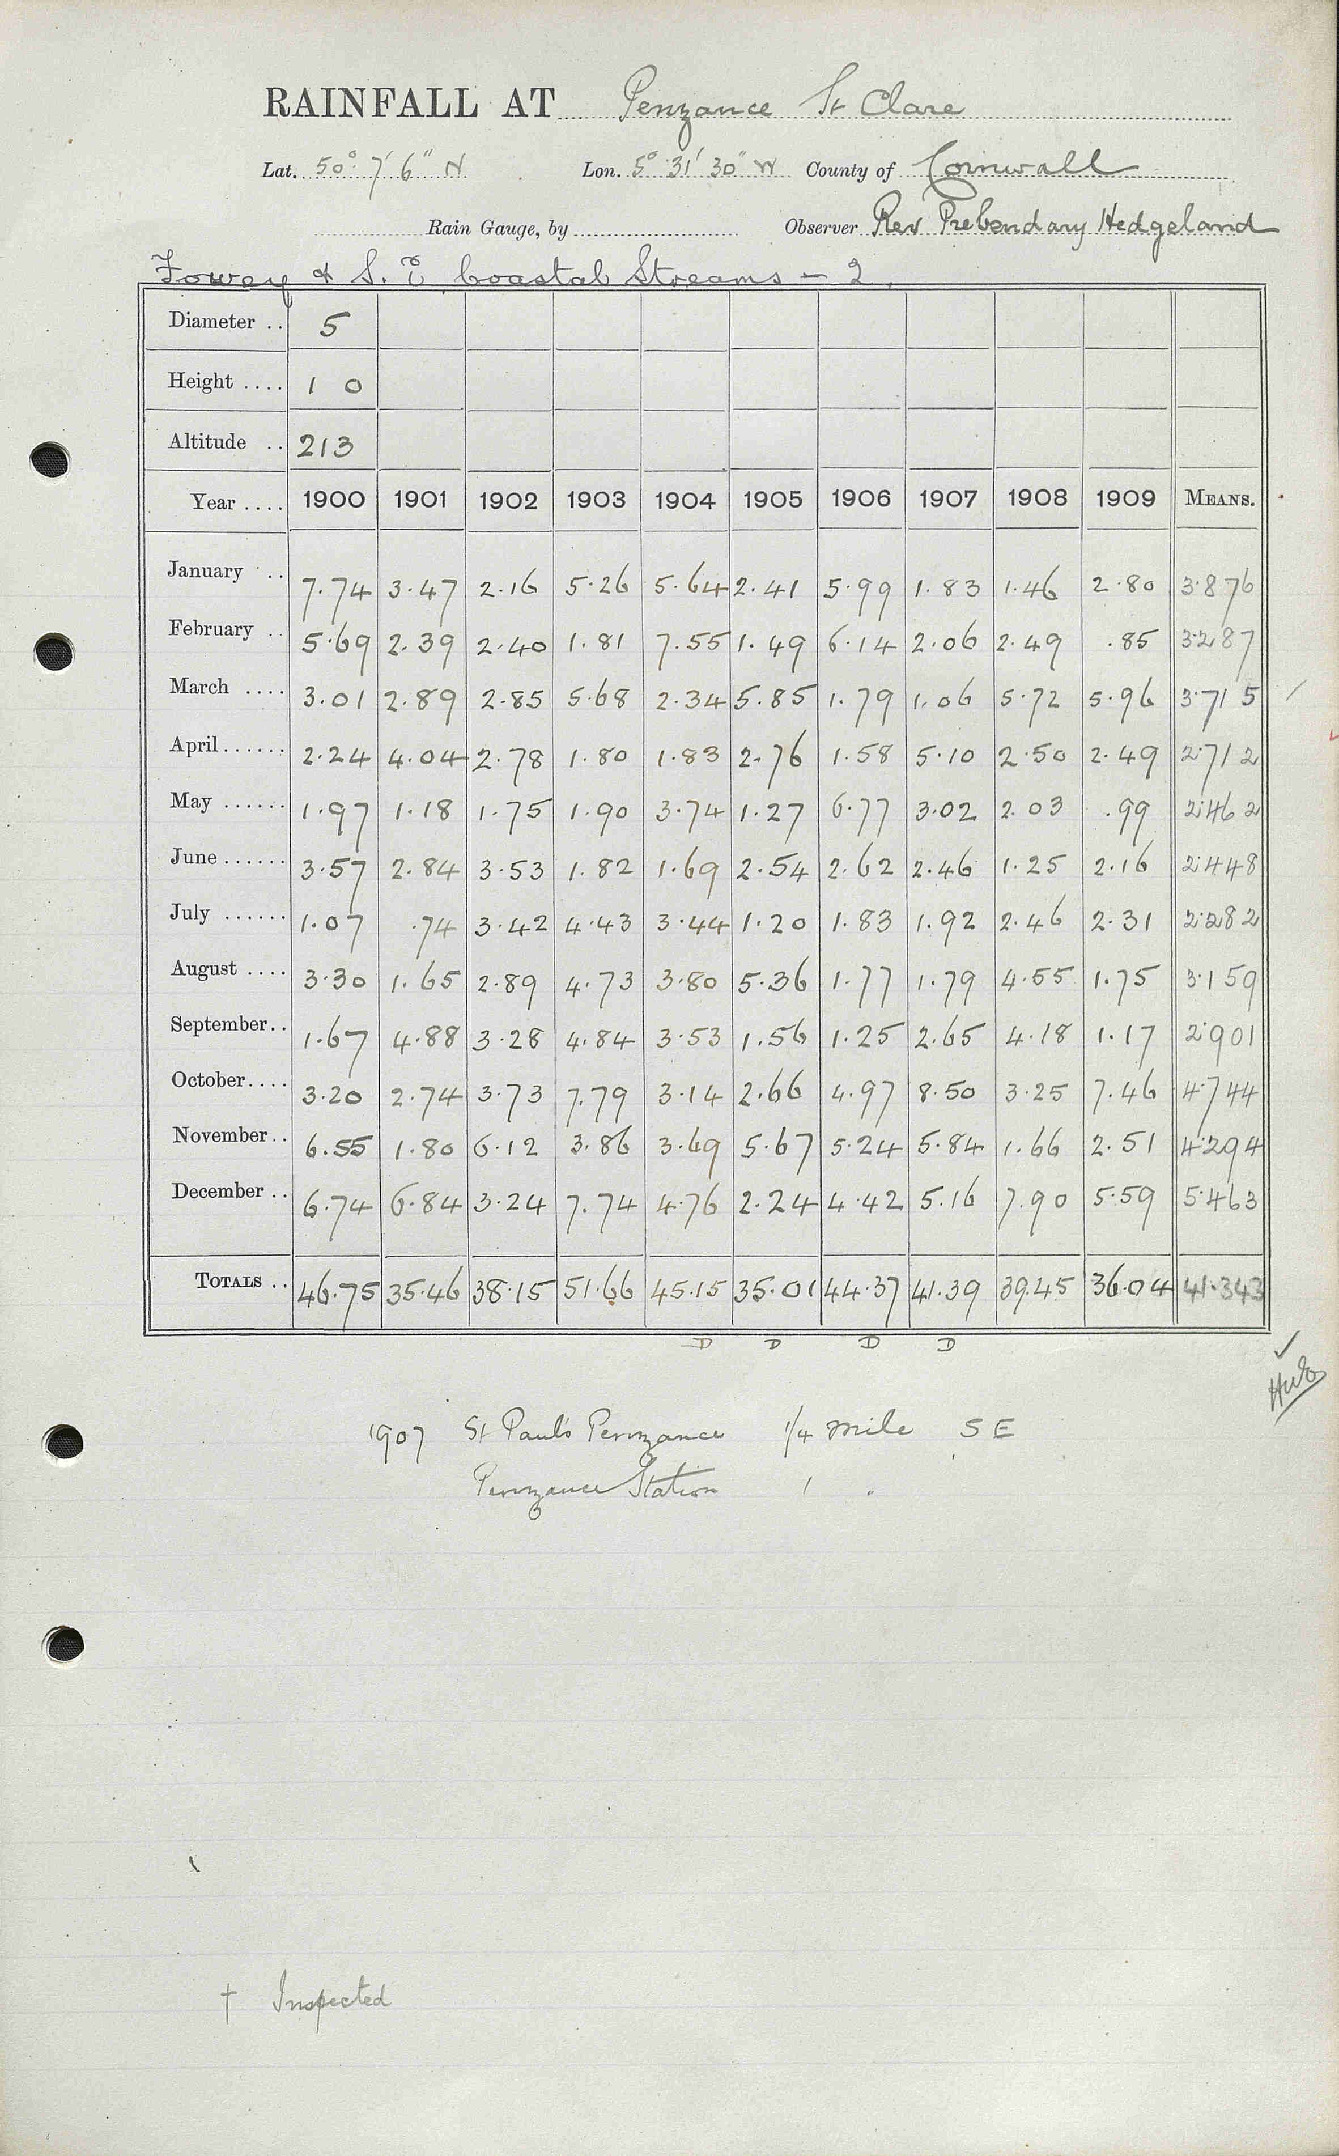 RAINFALL AT Penzance St Clare
Lat. 50° 7' 6" N Lon. 5° 31' 30" W County of Cornwall
Rain Gauge, by Observer Rev Prebendary Hedgeland
Fowey & S. E Coastal Streams - 2.
Diameter .. 5
Height .... 1 0
Altitude .. 213
Year .... 1900 1901 1902 1903 1904 1905 1906 1907 1908 1909 MEANS.
January .. 7.74 3.47 2.16 5.26 5.64 2.41 5.99 1.83 1.46 2.80 3.876
February .. 5.69 2.39 2.40 1.81 7.55 1.49 6.14 2.06 2.49 .85 3.287
March .... 3.01 2.89 2.85 5.68 2.34 5.85 1.79 1.06 5.72 5.96 3.715
April ...... 2.24 4.04 2.78 1.80 1.83 2.76 1.58 5.10 2.50 2.49 2.712
May ...... 1.97 1.18 1.75 1.90 3.74 1.27 6.77 3.02 2.03 .99 2.462
June ...... 3.57 2.84 3.53 1.82 1.69 2.54 2.62 2.46 1.25 2.16 2.448
July ...... 1.07 .74 3.42 4.43 3.44 1.20 1.83 1.92 2.46 2.31 2.282
August .... 3.30 1.65 2.89 4.73 3.80 5.36 1.77 1.79 4.55 1.75 3.159
September.. 1.67 4.88 3.28 4.84 3.53 1.56 1.25 2.65 4.18 1.17 2.901
October.... 3.20 2.74 3.73 7.79 3.14 2.66 4.97 8.50 3.25 7.46 4.744
November.. 6.55 1.80 6.12 3.86 3.69 5.67 5.24 5.84 1.66 2.51 4.294
December .. 6.74 6.84 3.24 7.74 4.76 2.24 4.42 5.16 7.90 5.59 5.463
TOTALS .. 46.75 35.46 38.15 51.66 45.15 35.01 44.37 41.39 39.45 36.04 41.343
D D D D
1907 St Paul's Penzance 1/4 mile SE
Penzance Station 1 "
† Inspected